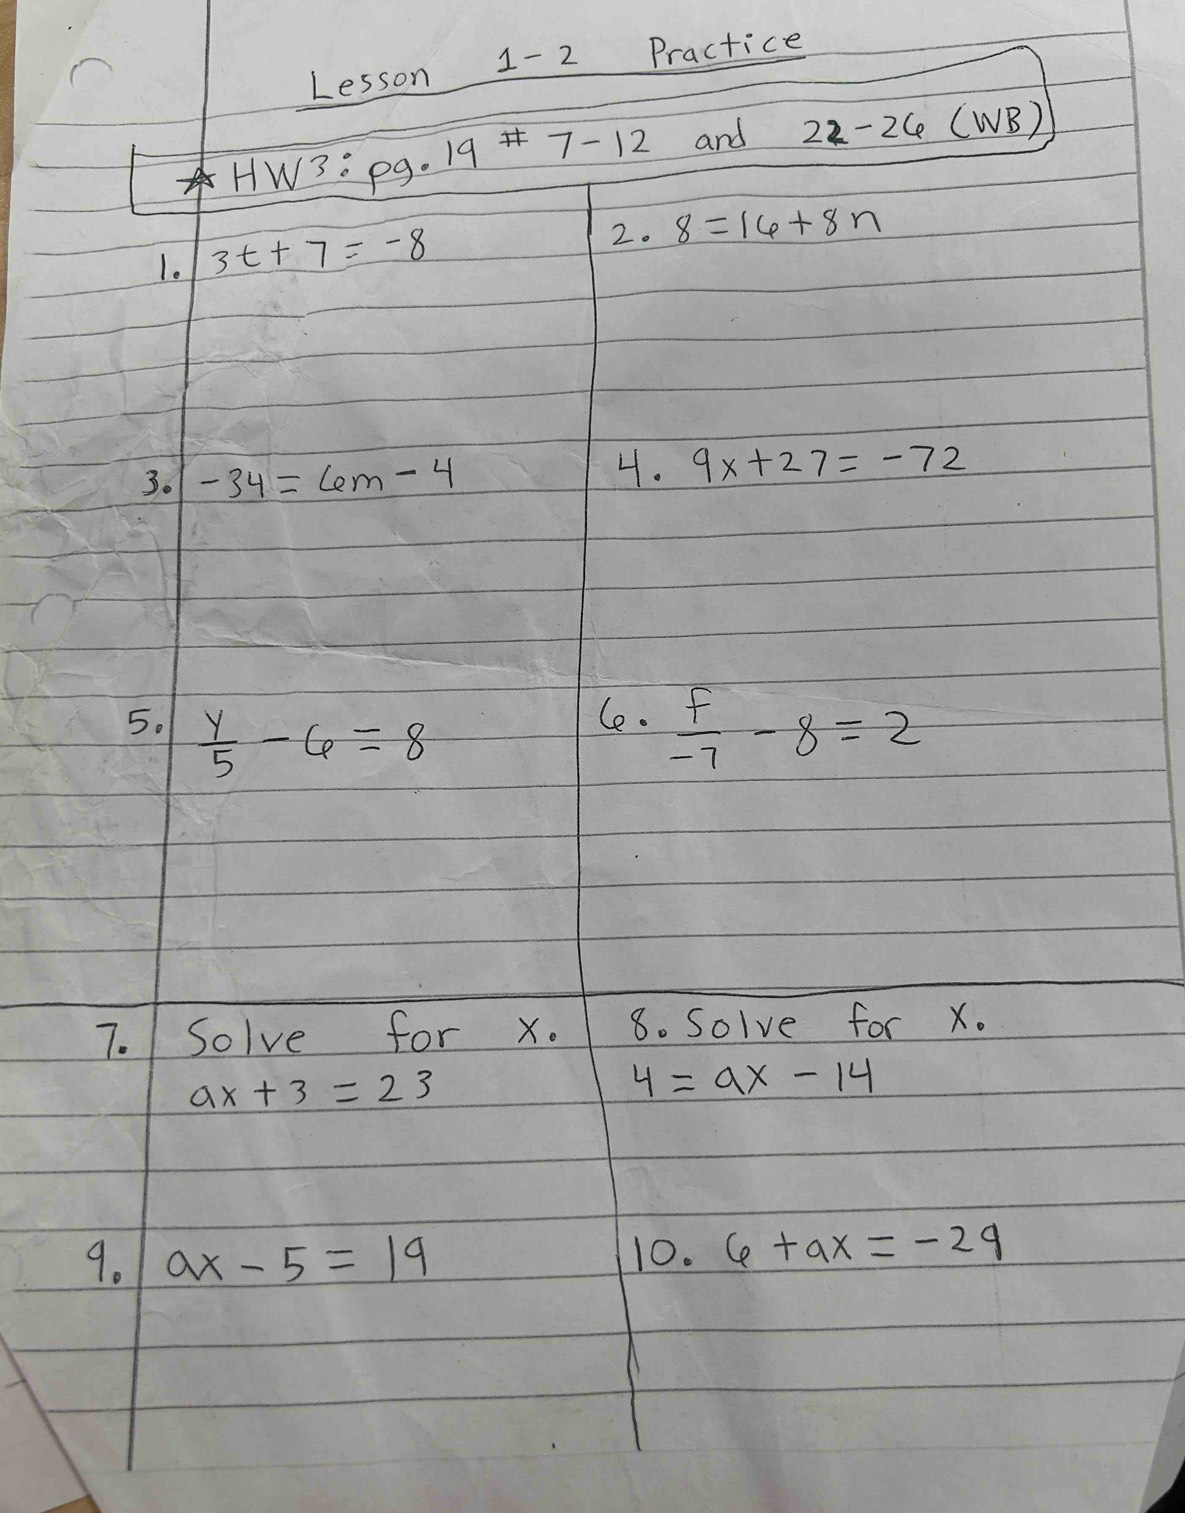 Lesson 1-2 Practice
☆ HW3: pg. 19 # 7-12 and 22-26 (WB)
1. 3t + 7 = -8
2. 8 = 16 + 8n
3. -34 = 6m - 4
4. 9x + 27 = -72
5. y/5 - 6 = 8
6. f/-7 - 8 = 2
7. Solve for x.
ax + 3 = 23
8. Solve for x.
4 = ax - 14
9. ax - 5 = 19
10. 6 + ax = -29